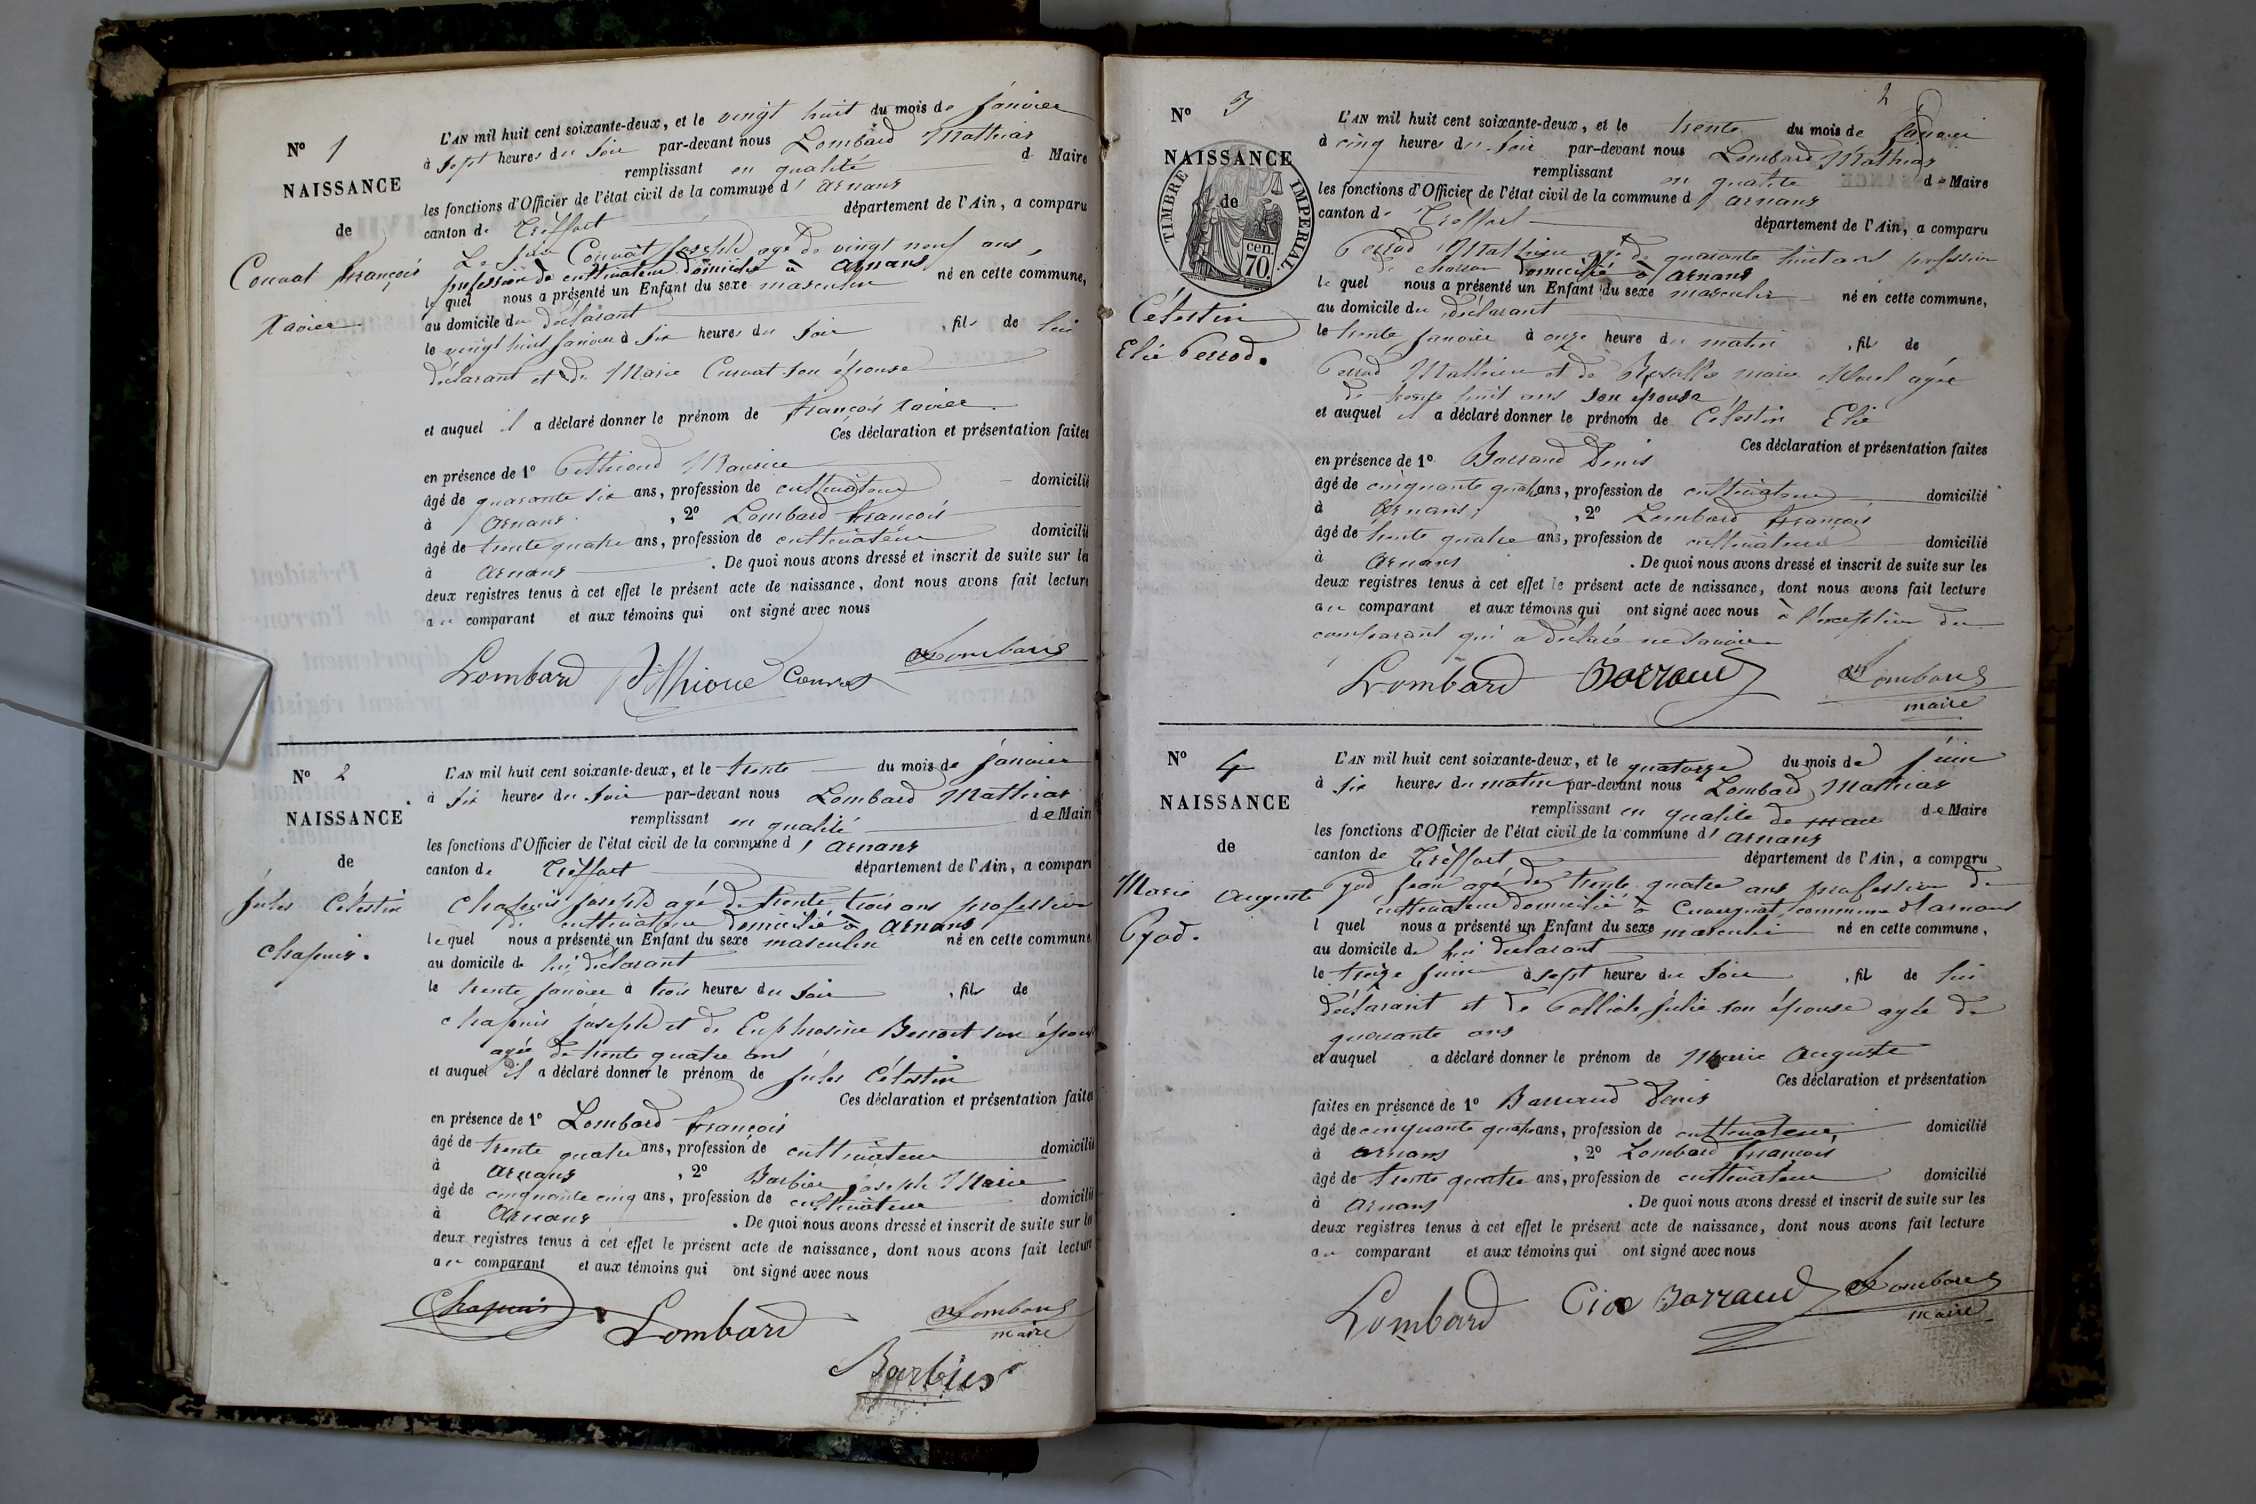 Nº 1
NAISSANCE
de
Convat François
Xavier
L'AN mil huit cent soixante-deux, et le vingt huit du mois de janvier
à sept heures du soir par-devant nous Lombard Mathias
remplissant en qualité de Maire
les fonctions d'Officier de l'état civil de la commune d'arnans
canton de Treffort département de l'Ain, a comparu
Le sieur Convat joseph agé de vingt neuf ans,
profession de cultivateur domicilié à arnans
lequel nous a présenté un Enfant du sexe masculin né en cette commune,
au domicile du déclarant
le vingt huit janvier à six heures du soir, fils de lui
déclarant et de Marie Curvat son épouse
et auquel il a déclaré donner le prénom de françois Xavier
Ces déclaration et présentation faites
en présence de 1º Pethioud Maurice
âgé de quarante six ans, profession de cultivateur domicilié
à arnans, 2º Lombard françois
âgé de trente quatre ans, profession de cultivateur domicilié
à arnans. De quoi nous avons dressé et inscrit de suite sur les
deux registres tenus à cet effet le présent acte de naissance, dont nous avons fait lecture
au comparant et aux témoins qui ont signé avec nous
Lombard Convat Lombard
Nº 2
NAISSANCE
de
jules Célestin
chapuis.
L'AN mil huit cent soixante-deux, et le trente du mois de janvier
à six heures du soir par-devant nous Lombard Mathias
remplissant en qualité de Maire
les fonctions d'Officier de l'état civil de la commune d'arnans
canton de Treffort département de l'Ain, a comparu
chapuis joseph agé de trente trois ans profession
de cultivateur domicilié à arnans
lequel nous a présenté un Enfant du sexe masculin né en cette commune
au domicile de lui déclarant
le trente janvier à trois heures du soir, fils de
chapuis joseph et de Euphrosine Benoit son épouse
agée de trente quatre ans
et auquel il a déclaré donner le prénom de jules Célestin
Ces déclaration et présentation faites
en présence de 1º Lombard françois
âgé de trente quatre ans, profession de cultivateur domicilié
à arnans, 2º Barbier joseph Marie
âgé de cinquante cinq ans, profession de cultivateur domicilié
à arnans. De quoi nous avons dressé et inscrit de suite sur les
deux registres tenus à cet effet le présent acte de naissance, dont nous avons fait lecture
au comparant et aux témoins qui ont signé avec nous
Chapuis Lombard Lombard
maire
Barbier
2
Nº 3
NAISSANCE
de
TIMBRE IMPERIAL
70 cen.
Célestin
Elie Perrod.
L'AN mil huit cent soixante-deux, et le trente du mois de Janvier
à cinq heures du soir par-devant nous Lombard Mathias
remplissant en qualité de Maire
les fonctions d'Officier de l'état civil de la commune d'arnans
canton de Treffort département de l'Ain, a comparu
Perrod Mathieu agé de quarante huit ans profession
de domicilié à arnans
lequel nous a présenté un Enfant du sexe masculin né en cette commune,
au domicile du déclarant
le trente janvier à onze heure du matin, fil de
Perrod Mathieu et de Rosalie marie Morel agée
de trente huit ans son épouse
et auquel il a déclaré donner le prénom de Célestin Elie
Ces déclaration et présentation faites
en présence de 1º Barraud Denis
âgé de cinquante quatre ans, profession de cultivateur domicilié
à Arnans, 2º Lombard françois
âgé de trente quatre ans, profession de cultivateur domicilié
à arnans. De quoi nous avons dressé et inscrit de suite sur les
deux registres tenus à cet effet le présent acte de naissance, dont nous avons fait lecture
au comparant et aux témoins qui ont signé avec nous à l'exception du
comparant qui a déclaré ne savoir
Lombard Barraud Lombard
maire
Nº 4
NAISSANCE
de
Marie auguste
Pyod.
L'AN mil huit cent soixante-deux, et le quatorze du mois de juin
à six heures du matin par-devant nous Lombard Mathias
remplissant en qualité de maire de Maire
les fonctions d'Officier de l'état civil de la commune d'arnans
canton de Treffort département de l'Ain, a comparu
Pyod jean agé de trente quatre ans profession de
cultivateur domicilié à Cuvergnat commune d'arnans
l quel nous a présenté un Enfant du sexe masculin né en cette commune,
au domicile de lui déclarant
le treize juin à sept heures du soir, fil de lui
déclarant et de Julie son épouse agée de
quarante ans
et auquel a déclaré donner le prénom de Marie auguste
Ces déclaration et présentation
faites en présence de 1º Barraud Denis
âgé de cinquante quatre ans, profession de cultivateur, domicilié
à arnans, 2º Lombard françois
âgé de trente quatre ans, profession de cultivateur domicilié
à arnans. De quoi nous avons dressé et inscrit de suite sur les
deux registres tenus à cet effet le présent acte de naissance, dont nous avons fait lecture
au comparant et aux témoins qui ont signé avec nous
Lombard Barraud Lombard
maire